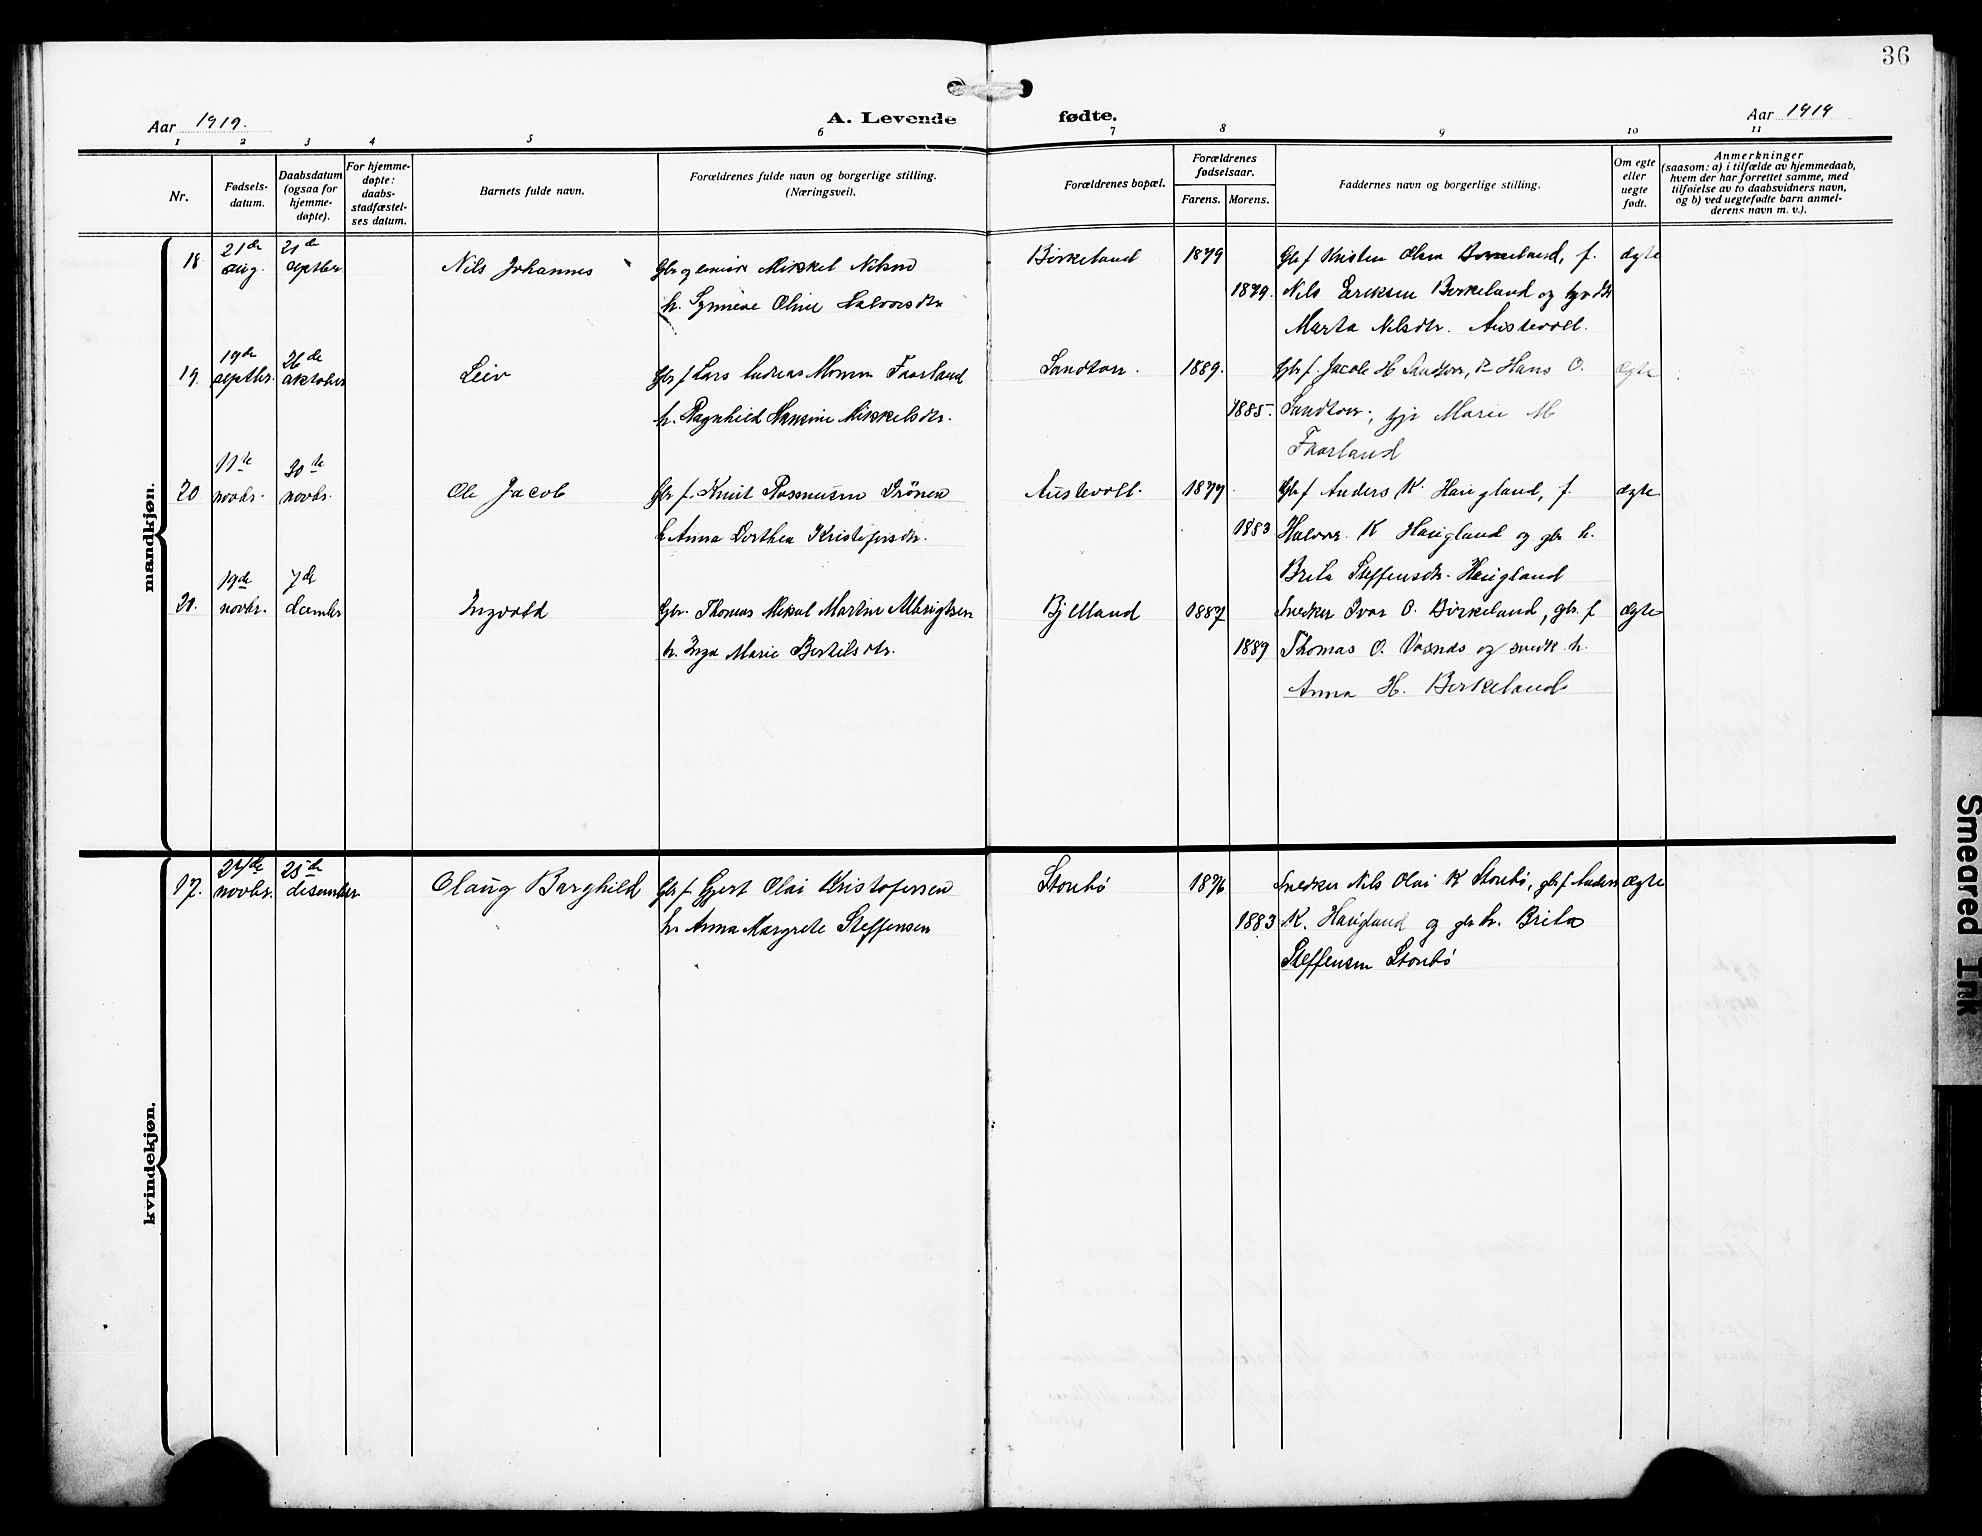 36
Aar 1919.
A. Levende fødte.
Aar 1919
1 2 3 4 5 6 7 8 9 10 11
Nr.
Fødsels-
datum.
Daabsdatum
(ogsaa for
hjemme-
døpte).
For hjemme-
døpte:
daabs-
stadfæstel-
ses datum.
Barnets fulde navn.
Forældrenes fulde navn og borgerlige stilling.
(Næringsvei).
Forældrenes bopæl.
Forældrenes
fødselsaar.
Farens. Morens.
Faddernes navn og borgerlige stilling.
Om egte
eller
uegte
født.
Anmerkninger
(saasom: a) i tilfælde av hjemmedaab,
hvem der har forrettet samme, med
tilføielse av to daabsvidners navn,
og b) ved uegtefødte barn anmel-
derens navn m. v.).
mandkjøn.
21de 21de
18. aug. septbr. Nils Johannes Gbr Mikkel Nilsen Birkeland 1879 Gbr f Kristen Olsen Birkeland, f. ægte
h. Synneve Oline Halvorsdtr 1879. Nils Eriksen Birkeland og
Marta Nilsdtr. Austevoll.
19de 26de
19. septbr. oktober Leiv Gbr f Lars Andreas Monsen Faarland Sandtorv. 1889. Gbr f. Jacob H Sandtorv, Hans O. ægte
h. Ragnhild Hansine Mikkelsdtr. 1885. Sandtorv, Marie M
Faarland
11te 30te
20 novbr. novbr. Ole Jacob Gbr f. Knut Rasmusen Drönen Austevoll. 1877 Gbr f Anders K. Haugland, f. ægte
h Anna Dorthea Kristofersdtr. 1883 Halvor K Haugland og gbr h.
Brita Steffensdtr. Haugland
19de 7de
21. novbr. decembr Ingvald Gbr. Thomas Mikal Martin Albrigtsen Bjelland 1887 Snedker Ivar O. Birkeland, gbr. f ægte
h. Inga Marie Bertilsdtr. 1889 Thomas O. Vasnes og snedk h.
Anna H. Birkeland
kvindekjøn.
27de 25de
17. novbr. disember Olaug Borghild Gbr f Gjert Olai Kristofersen Storebø 1876 Snedker Nils Olai K Storebø, gbr f Anders ægte
h. Anna Margrete Steffensen 1883 K. Haugland og gbr h. Brita
Steffensen Storebø
Smeared Ink